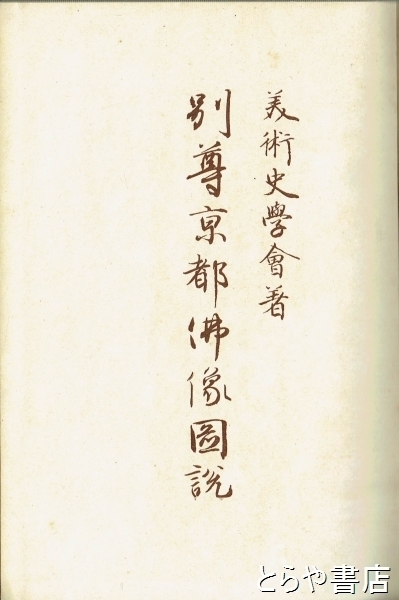 美術史學會著
別尊京都佛像圖説
とらや書店